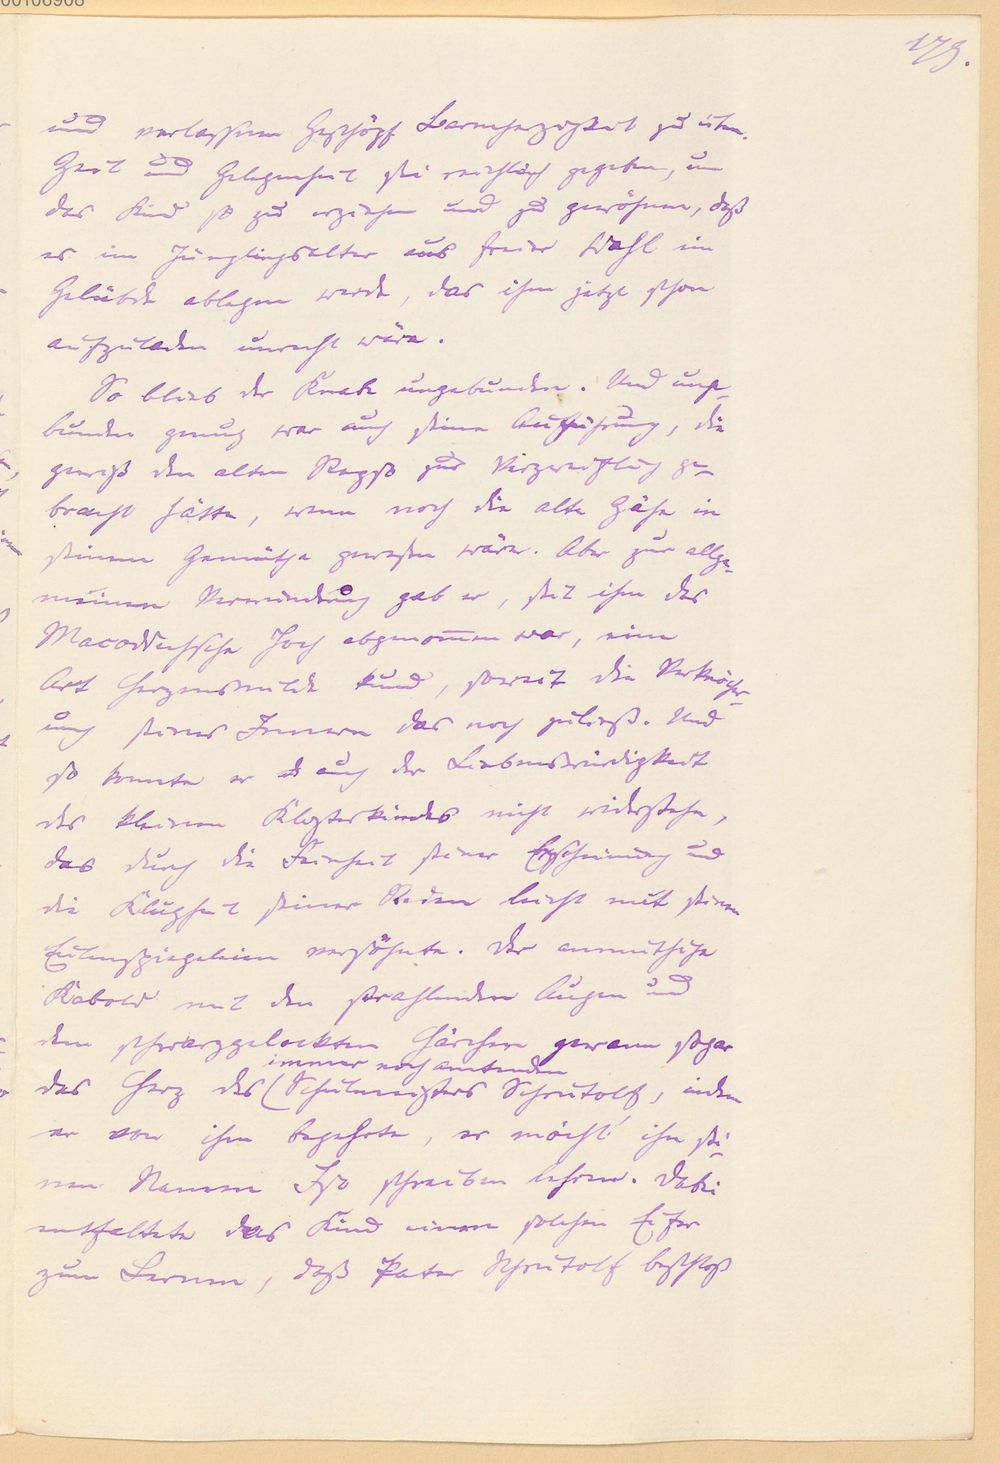 00106908
179.
und verlassenen Geschöpf Barmherzigkeit zu üben.
Zeit und Gelegenheit sei reichlich gegeben, um
das Kind so zu erziehen und zu gewöhnen, daß
es im Jünglingsalter aus freier Wahl im
Gelübde ablegen werde, das ihm jetzt schon
aufzuladen unrecht wäre.
So blieb der Knabe ungebunden. Und unge-
bunden genug war auch seine Aufführung, die
gewiß den alten Rapso zur Verzweiflung ge-
bracht hätte, wenn noch die alte Zähe in
seinem Gemüthe gewesen wäre. Aber zur allge-
meinen Verwunderung gab er, seit ihm das
Joch abgenommen war, eine
Art Herzensmilde kund, soweit die Verknöcher-
ung seines Innern das noch zuließ. Und
so konnte er auch der Liebenswürdigkeit
des kleinen Klosterkindes nicht widerstehen,
das durch die Feinheit seiner Erscheinung und
die Klugheit seiner Reden leicht mit seinen
Eulenspiegeleien versöhnte. Der anmuthige
Kobold mit den strahlenden Augen und
dem schwarzgelockten Härchen gewann sogar
immer noch amtenden
das Herz des (Schulmeisters Schrutolf, indem
er von ihm begehrte, er möcht' ihn sei-
nen Namen Iso schreiben lehren. Dabei
entfaltete das Kind einen solchen Eifer
zum Lernen, daß Pater Schrutolf beschloß